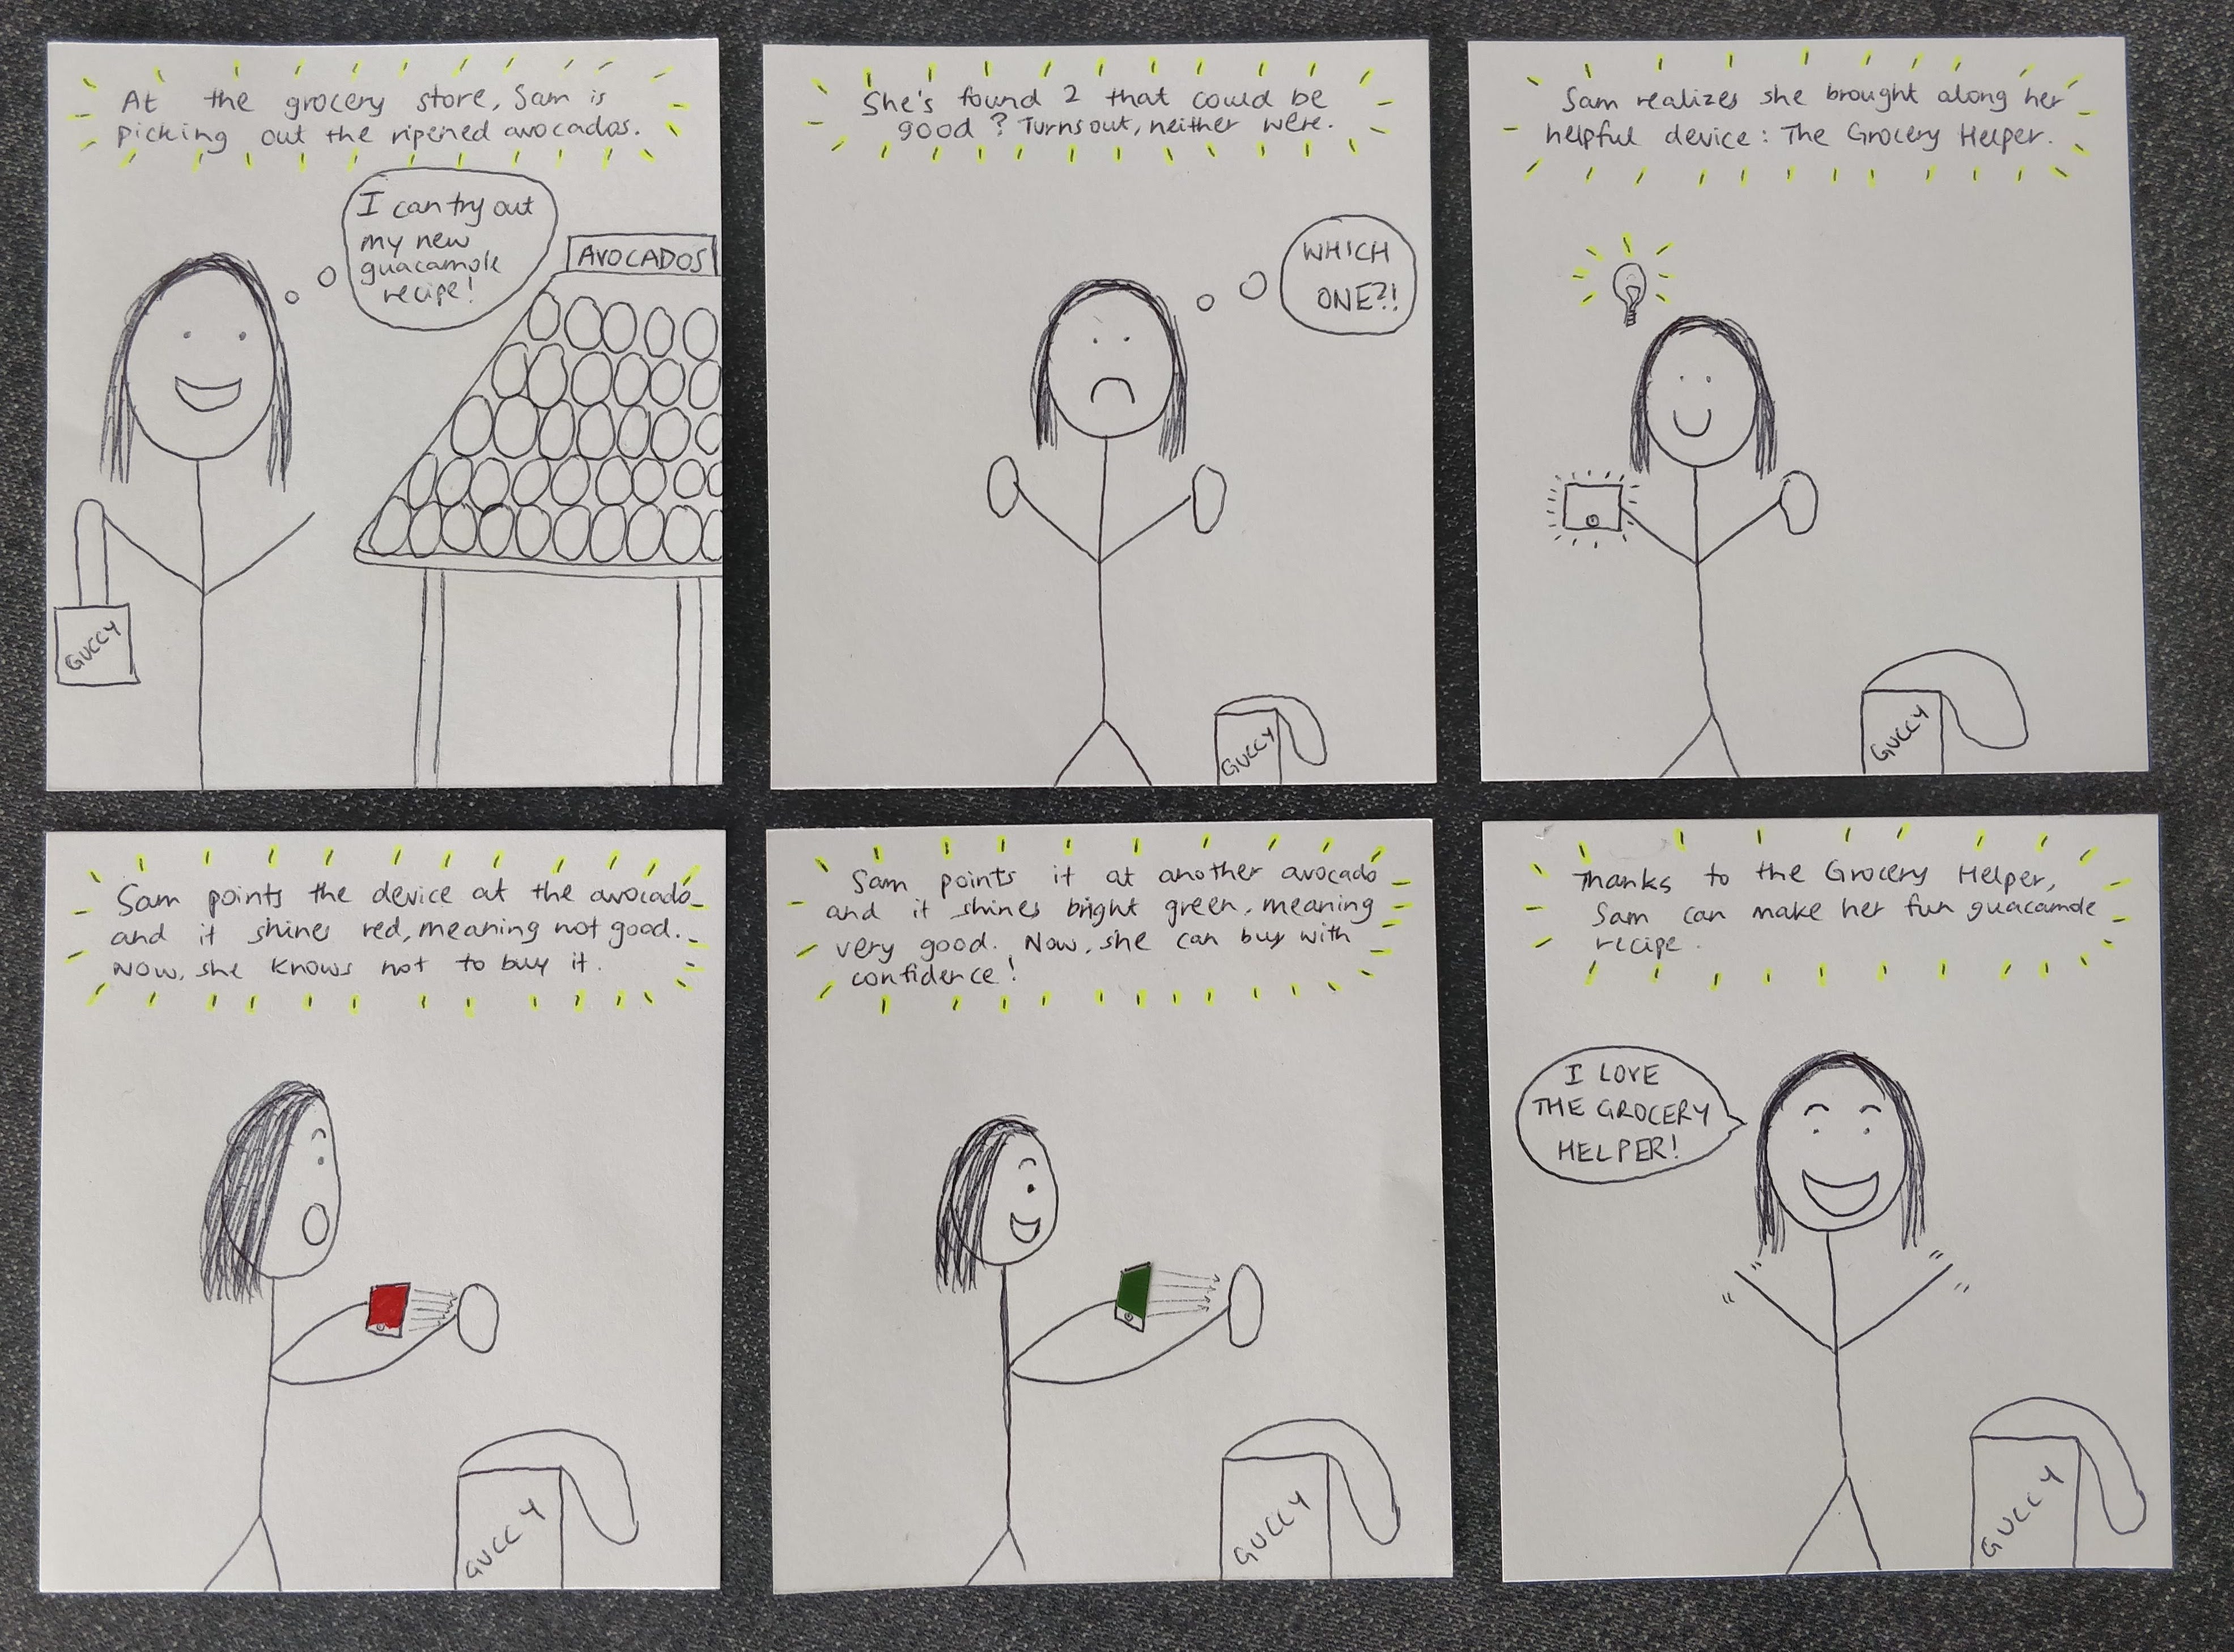 At the grocery store, Sam is
picking out the ripened avocados.
I can try out
my new
guacamole
recipe!
AVOCADOS
GUCCY
She's found 2 that could be
good? Turns out, neither were.
WHICH
ONE?!
GUCCY
Sam realizes she brought along her
helpful device: The Grocery Helper.
GUCCY
Sam points the device at the avocado
and it shines red, meaning not good.
Now, she knows not to buy it.
GUCCY
Sam points it at another avocado
and it shines bright green, meaning
very good. Now, she can buy with
confidence!
GUCCY
Thanks to the Grocery Helper,
Sam can make her fun guacamole
recipe.
I LOVE
THE GROCERY
HELPER!
GUCCY